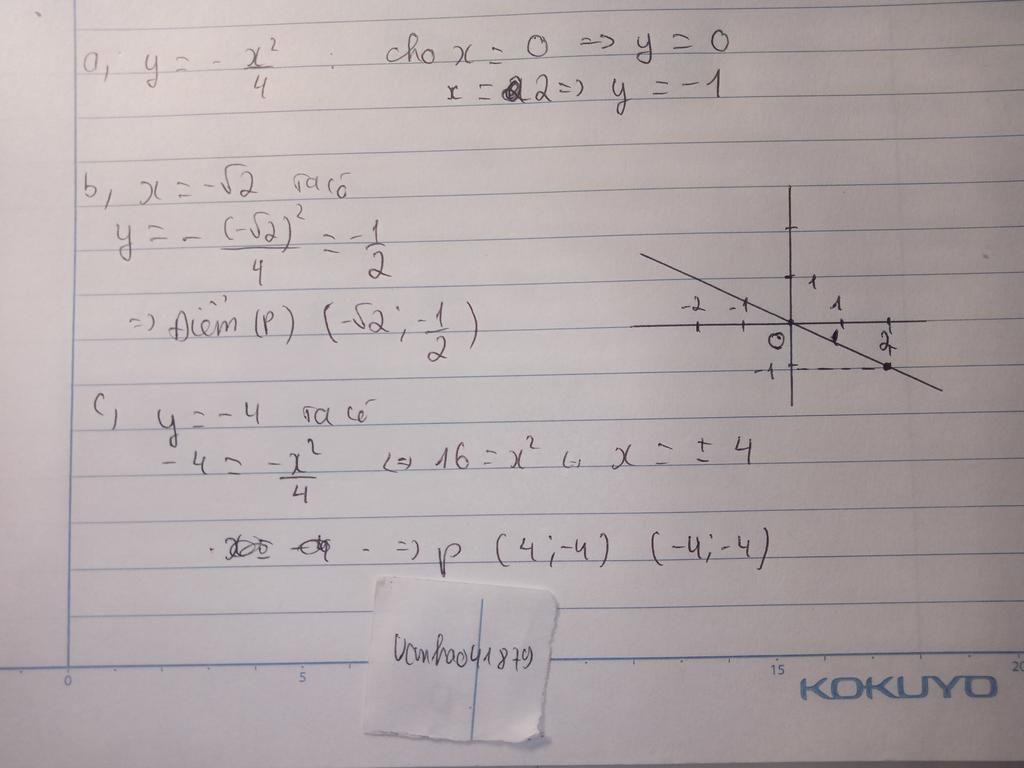 a, y = - x²/4 : cho x = 0 => y = 0
x = 2 => y = -1
b, x = -√2 ta có
y = - (-√2)²/4 = -1/2
=> Điểm (P) (-√2; -1/2)
1
-2 -1 1
0 2
-1
c, y = -4 ta có
-4 = -x²/4 <=> 16 = x² <=> x = ± 4
=> P (4; -4) (-4; -4)
Vanhao41879
0 5 15 20
KOKUYO